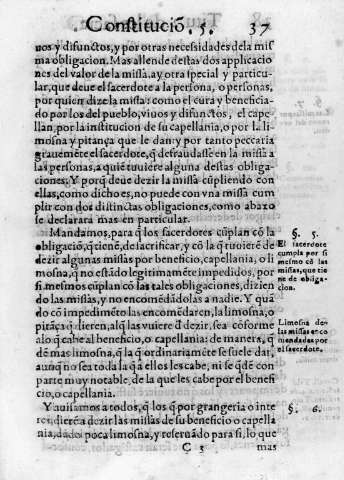 Constituciõ. 5. 37
uos y difunctos, y por otras necesidades dela mis
ma obligacion. Mas allende destas dos applicacio
nes del valor de la missa, ay otra special y particu-
lar, que deue el sacerdote a la persona, o personas,
por quien dize la missa: como el cura y beneficia-
do por los del pueblo, viuos y difunctos, el cape-
llan, por la institucion de su capellania, o por la li-
mosna y pitança que le dan: y por tanto peccaria
grauemẽte el sacerdote, q̃ defraudasse en la missa a
las personas, a quiẽ tuuiere alguna destas obliga-
ciones. Y porq̃ deue dezir la missa cũpliendo con
ellas, como dicho es, no puede con vna missa cum
plir con dos distinctas obligaciones, como abaxo
se declarara mas en particular.
Mandamos, para q̃ los sacerdotes cũplan cõ la
obligaciõ, q̃ tienẽ, de sacrificar, y cõ la q̃ tuuierẽ de
dezir algunas missas por beneficio, capellania, o li
mosna, q̃ no estãdo legitimamẽte impedidos, por
si mesmos cũplan cõ las tales obligaciones, dizien
do las missas, y no encomẽdãdolas a nadie. Y quã
do cõ impedimẽto las encomẽdaren, la limosna, o
pitãça q̃ dieren, al q̃ las vuiere de dezir, sea cõforme
alo q̃ cabe al beneficio, o capellania: de manera, q̃
dẽ mas limosna, q̃ la q̃ ordinariamẽte se suele dar,
aunq̃ no sea toda la q̃ a ellos les cabe, ni se q̃dẽ con
parte muy notable, de la que les cabe por el benefi
cio, o capellania.
Y auisamos a todos, q̃ los q̃ por grangeria o inte
res, dierẽ a dezir las missas de su beneficio o capella
nia, dãdo poca limosna, y reseruãdo para si, lo que
C 3 mas
§. 5.
El sacerdote
cumpla por si
mesmo cõ las
missas, que tie
ne de obliga-
cion.
Limosna de
las missas enco
mendadas por
el sacerdote.
§. 6.